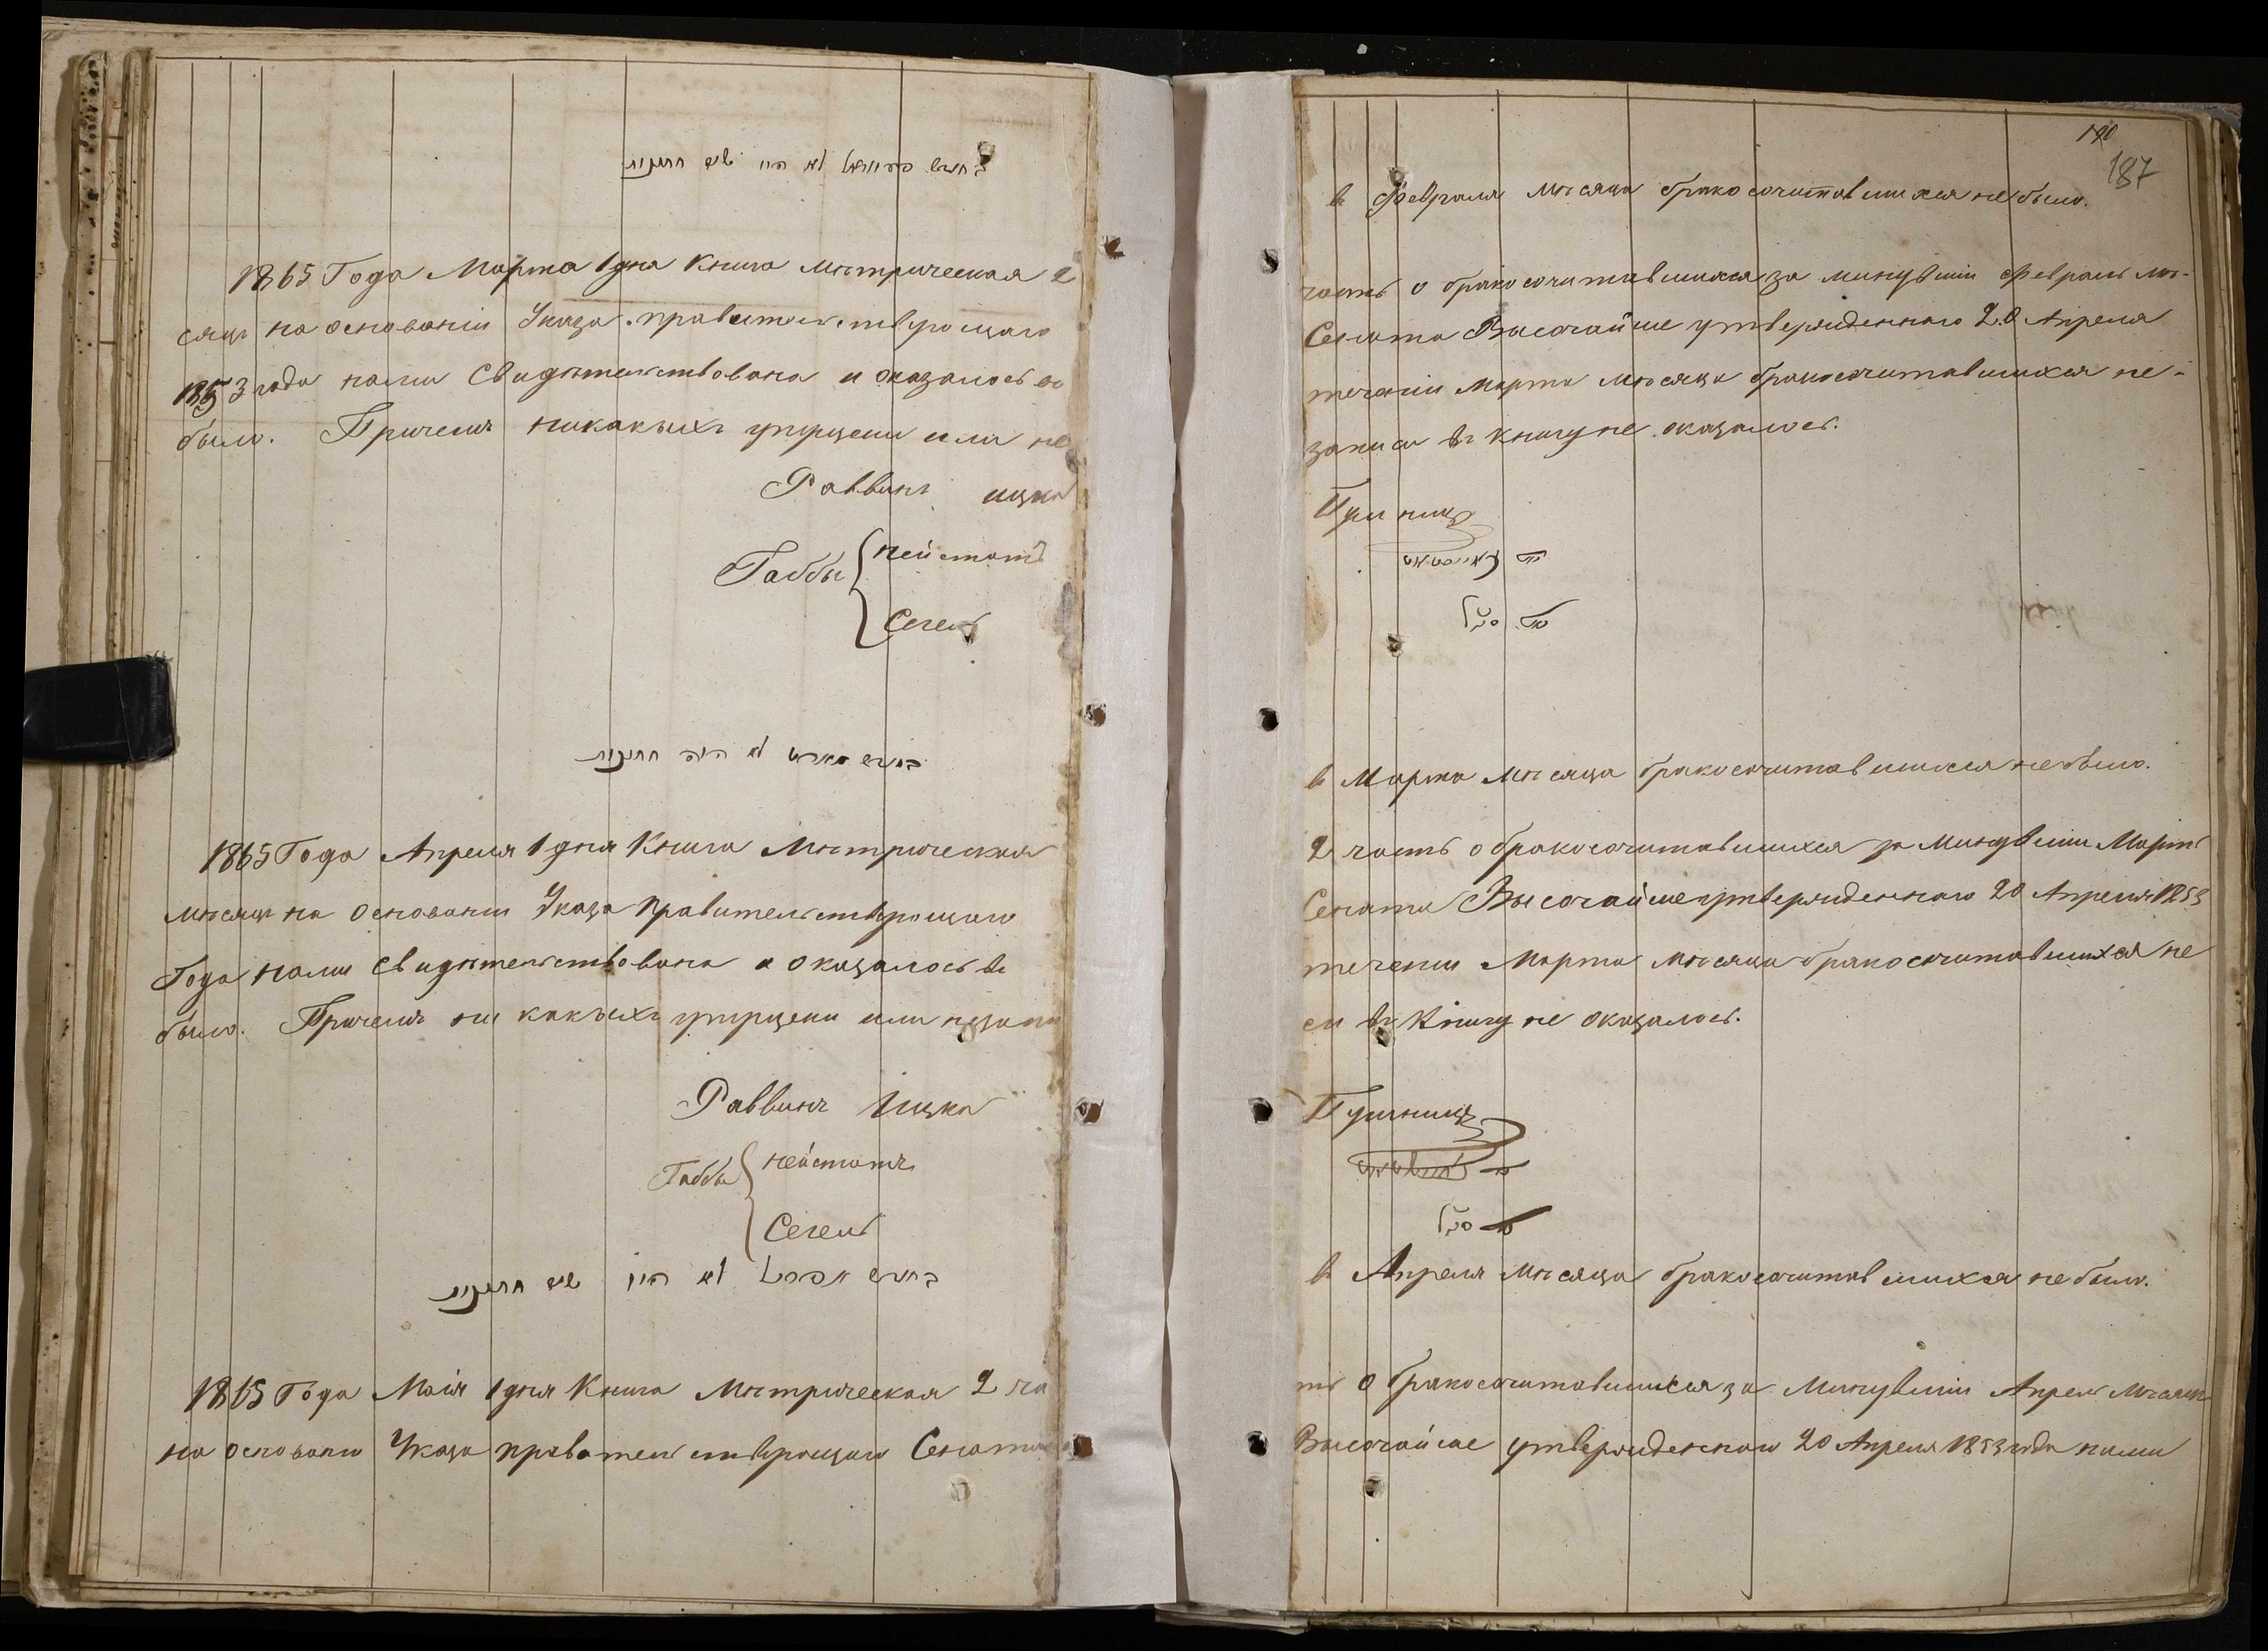 בחודש פברואל לא היו שום חתונות
1865 Года Марта 1 дня Книга Мѣтрическая 2
сяцъ на основаніи Указа правительствующаго
1853 года нами Свидѣтельствована и оказалось во
было. Причемъ никакихъ упущени или не
Раввинъ ицко
Габбы Нейстатъ
Сегель
בחודש מארט לא היה חתונות
1865 Года Апреля 1 дня Книга Мѣтрическая
мѣсяцъ на основании Указа Правительствующаго
Года нами свидѣтельствована и оказалось въ
было. Причемъ ни какихъ упущени или незапи
Раввинъ Ицко
Габбы Нейстатъ
Сегель
בחודש אפריל לא היו שום חתונות
1865 Года Маія 1 дня Книга Мѣтрическая 2 ча
на основани Указа правительствующаго Сената
190
187
в Февраля мѣсяца бракосочитавшихся не было.
часть о бракосочитавшихся за минувшіи Февраль мѣ-
Сената Высочайше утвержденнаго 20 Апреля
течаніи марта мѣсяца бракосочитавшихся не-
записи въ книгу не оказалось.
סג"ל
в Марта Мѣсяца бракосочитавшихся небыло.
2 часть о бракосочитавшихся за Минувшіи Мартъ
Сената Высочайше утвержденнаго 20 Апреля 1853
течении Марта мѣсяца бракосочитавшихся не
си въ Книгу не оказалось.
סג"ל
в Апреля Мѣсяца бракосочитавшихся не было.
ть о бракосочитавшихся за Минувшіи Апрель Мѣсяцъ
Высочайше утвержденнаго 20 Апреля 1853 года нами